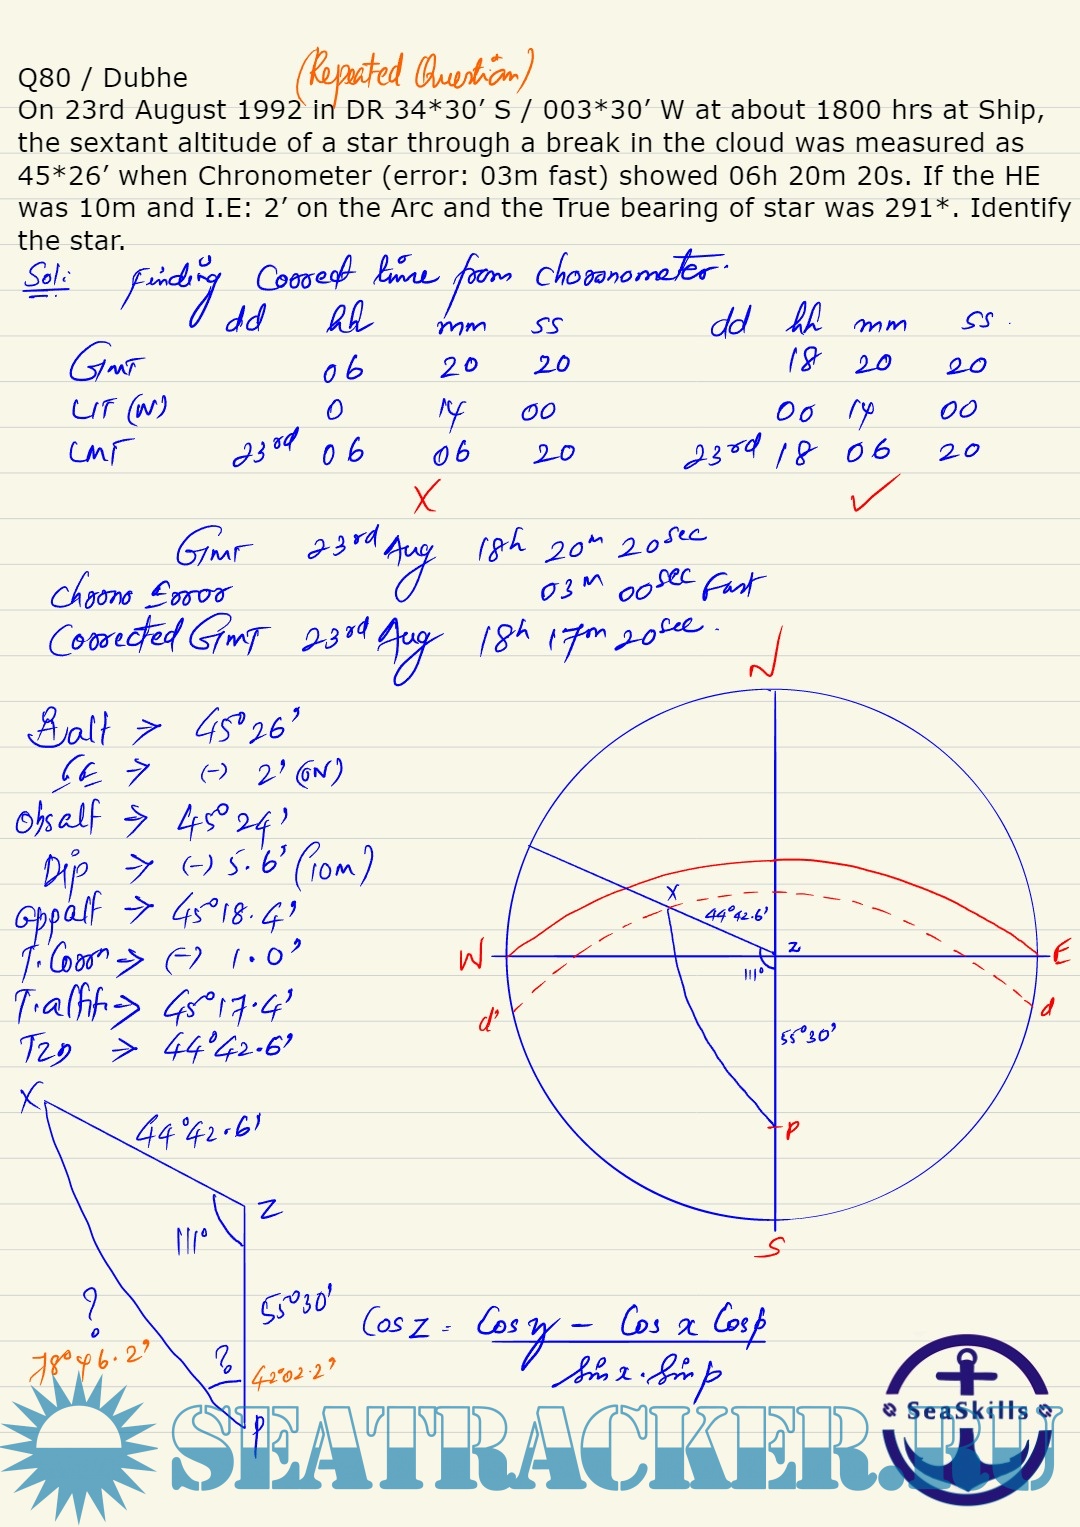 Q80 / Dubhe (Repeated Question)
On 23rd August 1992 in DR 34*30’ S / 003*30’ W at about 1800 hrs at Ship,
the sextant altitude of a star through a break in the cloud was measured as
45*26’ when Chronometer (error: 03m fast) showed 06h 20m 20s. If the HE
was 10m and I.E: 2’ on the Arc and the True bearing of star was 291*. Identify
the star.
Sol: Finding Correct time from Chronometer.
dd hh mm ss dd hh mm ss.
GMT 06 20 20 18 20 20
LIT (W) 0 14 00 00 14 00
LMT 23rd 06 06 20 23rd 18 06 20
X ✓
GMT 23rd Aug 18h 20m 20sec
Chrono Error 03m 00sec Fast
Corrected GMT 23rd Aug 18h 17m 20sec.
N
alt → 45°26’
IE → (-) 2’ (ON)
Obsalt → 45°24’
Dip → (-) 5.6’ (10M)
appalt → 45°18.4’
X 44°42.6’
T.Corrn → (-) 1.0’
W Z E
111°
T.alt → 45°17.4’
d’ d
TZD → 44°42.6’
55°30’
X
44°42.6’
P
Z
111°
S
55°30’
?
Cos Z = Cos y – Cos x Cos p
Sin x . Sin p
78°46.2’
? 42°02.2’
P
SeaSkills
SEATRACKER.RU